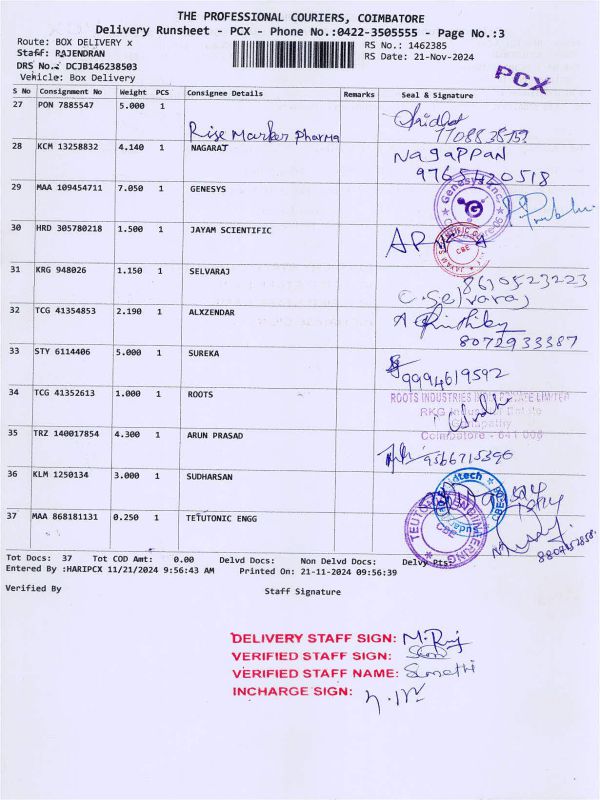 THE PROFESSIONAL COURIERS, COIMBATORE
Delivery Runsheet - PCX - Phone No.:0422-3505555 - Page No.:3
Route: BOX DELIVERY x
RS No.: 1462385
Staff: RAJENDRAN
RS Date: 21-Nov-2024
DRS No.: DCJB146238503
Vehicle: Box Delivery
PCX
S No Consignment No Weight PCS Consignee Details Remarks Seal & Signature
27 PON 7885547 5.000 1
Rise Marker Pharma
28 KCM 13258832 4.140 1 NAGARAJ Nagappan
9765420518
29 MAA 109454711 7.050 1 GENESYS
Genesys Inc.
30 HRD 305780218 1.500 1 JAYAM SCIENTIFIC
CBE
31 KRG 948026 1.150 1 SELVARAJ 8610523223
C. Selvaraj
32 TCG 41354853 2.190 1 ALXZENDAR
8072933387
33 STY 6114406 5.000 1 SUREKA
9994619592
34 TCG 41352613 1.000 1 ROOTS
ROOTS INDUSTRIES INDIA PRIVATE LIMITED
RKG Industrial Estate
Ganapathy
Coimbatore - 641 006
35 TRZ 140017854 4.300 1 ARUN PRASAD
9566715396
36 KLM 1250134 3.000 1 SUDHARSAN
37 MAA 868181131 0.250 1 TETUTONIC ENGG
CBE
Tot Docs: 37 Tot COD Amt: 0.00 Delvd Docs: Non Delvd Docs: Delvy Pts:
Entered By :HARIPCX 11/21/2024 9:56:43 AM Printed On: 21-11-2024 09:56:39
Verified By Staff Signature
DELIVERY STAFF SIGN: M.Raj
VERIFIED STAFF SIGN:
VERIFIED STAFF NAME: Sumathi
INCHARGE SIGN: